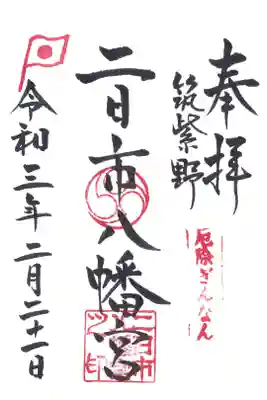 奉拝
筑紫野
厄除ぎんなん
二日市八幡宮
令和三年二月二十一日